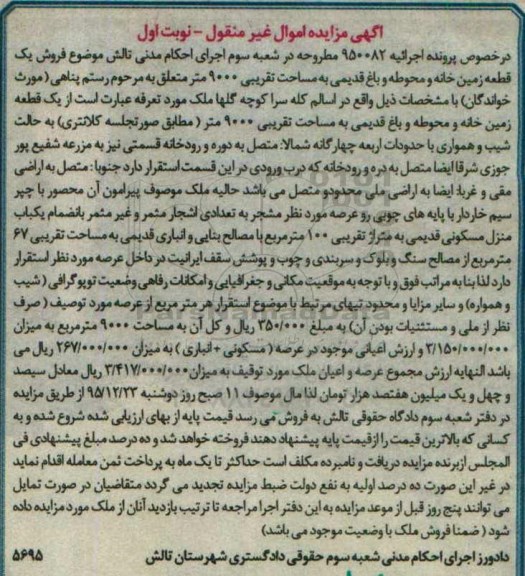 آگهی مزایده اموال غیر منقول - نوبت اول
درخصوص پرونده اجرائیه ۹۵۰۰۸۲ مطروحه در شعبه سوم اجرای احکام مدنی تالش موضوع فروش یک
قطعه زمین خانه و محوطه و باغ قدیمی به مساحت تقریبی ۹۰۰۰ متر متعلق به مرحوم رستم پناهی (مورث
خواندگان) با مشخصات ذیل واقع در اسالم کله سرا کوچه گلها ملک مورد تعرفه عبارت است از یک قطعه
زمین خانه و محوطه و باغ قدیمی به مساحت تقریبی ۹۰۰۰ متر (مطابق صورتجلسه کلانتری) به حالت
شیب و همواری با حدودات اربعه چهارگانه شمالا: متصل به دوره و رودخانه قسمتی نیز به مزرعه شفیع پور
جوزی شرقا ایضا متصل به دره و رودخانه که درب ورودی در این قسمت استقرار دارد جنوبا: متصل به اراضی
مقی و غربا: ایضا به اراضی ملی محدودو متصل می باشد حالیه ملک موصوف پیرامون آن محصور با چپر
سیم خاردار با پایه های چوبی رو عرصه مورد نظر مشجر به تعدادی اشجار مثمر و غیر مثمر بانضمام یکباب
منزل مسکونی قدیمی به متراژ تقریبی ۱۰۰ مترمربع با مصالح بنایی و انباری قدیمی به مساحت تقریبی ۶۷
مترمربع از مصالح سنگ و بلوک و سربندی و چوب و پوشش سقف ایرانیت در داخل عرصه مورد نظر استقرار
دارد لذا بنا به مراتب فوق و با توجه به موقعیت مکانی و جغرافیایی و امکانات رفاهی وضعیت توپوگرافی (شیب
و همواره) و سایر مزایا و محدودیتهای مرتبط با موضوع استقرار هر متر مربع از عرصه مورد توصیف (صرف
نظر از ملی و مستثنیات بودن آن) به مبلغ ۳۵۰/۰۰۰ ریال و کل آن به مساحت ۹۰۰۰ مترمربع به میزان
۳/۱۵۰/۰۰۰/۰۰۰ و ارزش اعیانی موجود در عرصه (مسکونی + انباری) به میزان ۲۶۷/۰۰۰/۰۰۰ ریال می
باشد النهایه ارزش مجموع عرصه و اعیان ملک مورد توقیف به میزان ۳/۴۱۷/۰۰۰/۰۰۰ ریال معادل سیصد
و چهل و یک میلیون هفتصد هزار تومان لذا مال موصوف ۱۱ صبح روز دوشنبه ۹۵/۱۲/۲۳ از طریق مزایده
در دفتر شعبه سوم دادگاه حقوقی تالش به فروش می رسد قیمت پایه از بهای ارزیابی شده شروع شده و به
کسانی که بالاترین قیمت را از قیمت پایه پیشنهاد دهند فروخته خواهد شد و ده درصد مبلغ پیشنهادی فی
المجلس ازبرنده مزایده دریافت و نامبرده مکلف است حداکثر تا یک ماه به پرداخت ثمن معامله اقدام نماید
در غیر این صورت ده درصد اولیه به نفع دولت ضبط مزایده تجدید می گردد متقاضیان در صورت تمایل
می توانند پنج روز قبل از موعد مزایده به این دفتر اجرا مراجعه تا ترتیب بازدید آنان از ملک مورد مزایده داده
شود (ضمنا فروش ملک با وضعیت موجود می باشد)
دادورز اجرای احکام مدنی شعبه سوم حقوقی دادگستری شهرستان تالش ۵۶۹۵